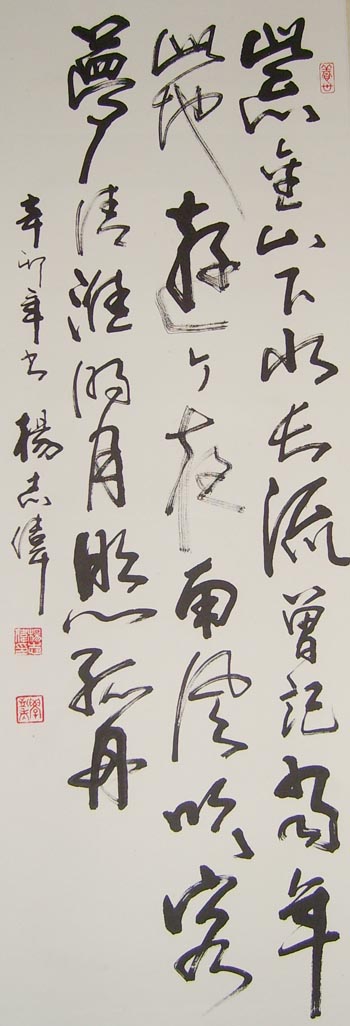 紫金山下水长流曾记當年
此地遊今夜南風吹客
夢清淮明月照孤舟
辛卯年书 楊志偉